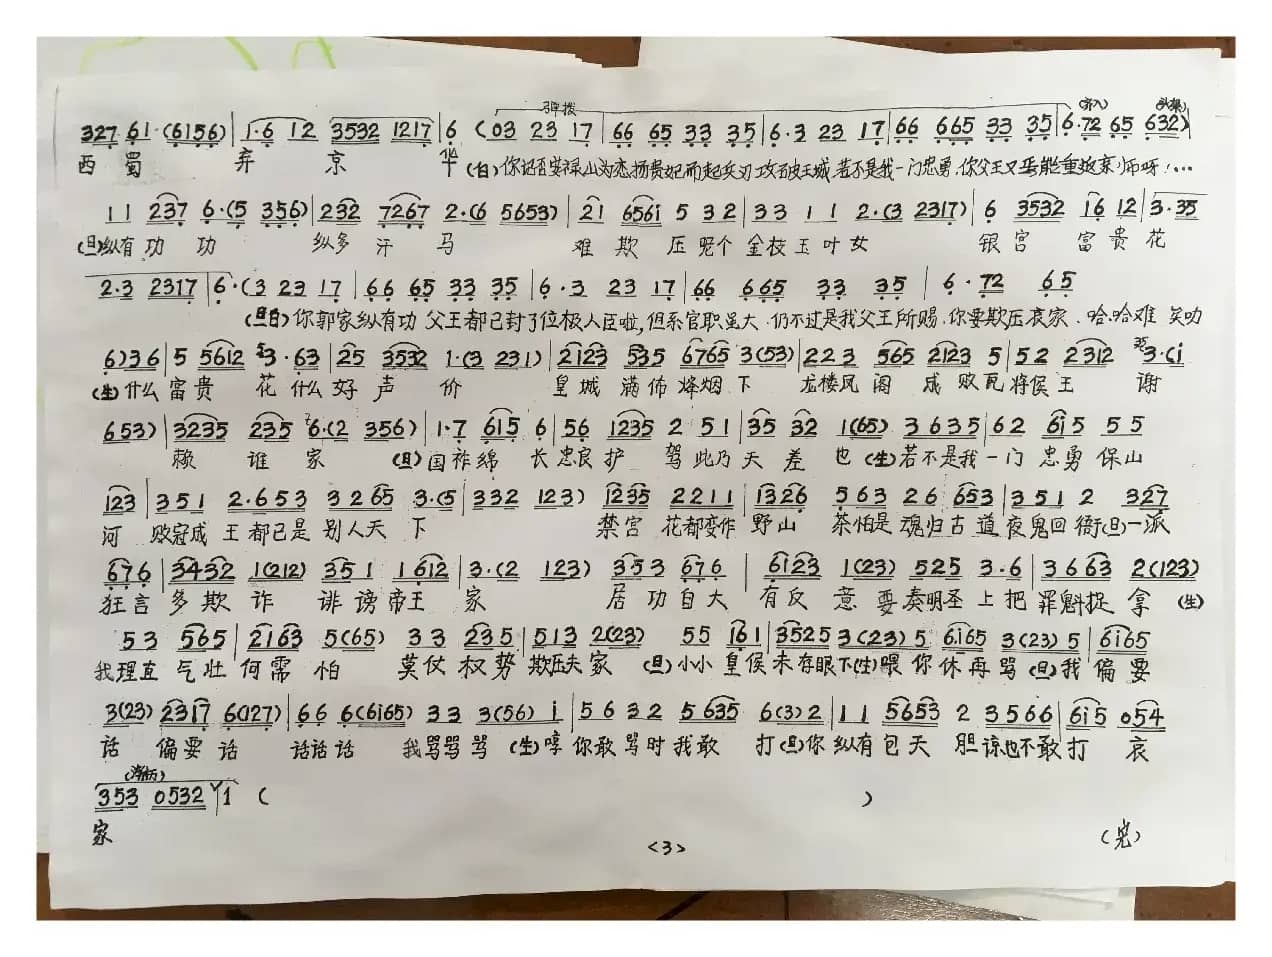 弹拨 (齐入)
3 2 7 6 1 · (6 1 5 6) | 1 · 6 1 2 3532 1217 | 6 (03 23 17 | 66 65 33 35 | 6 · 3 23 17 | 66 665 33 35 | 6 · 72 65 632)
西蜀 弃 京 华 (白)你记否安禄山为恋扬贵妃而起兵刃攻破王城,若不是我一门忠勇,你父王又岂能重返京师呀!...
1 1 237 6 · (5 356) | 232 7267 2 · (6 5653) | 21 6561 5 32 | 33 11 2 · (3 2317) | 6 3532 16 12 | 3 · 35
(旦)纵有功 功 纵多 汗 马 难 欺 压 呢个 金枝 玉叶 女 银宫 富贵花
2 · 3 2317 | 6 · (3 23 17 | 66 65 33 35 | 6 · 3 23 17 | 66 665 33 35 | 6 · 72 65
(旦白)你郭家纵有功 父王都已封了位极人臣啦,但系官职虽大 仍不过是我父王所赐,你要欺压哀家、哈哈难 笑叻
6) 36 | 5 5612 3 · 63 | 25 3532 1 · (3 231) | 2123 535 6765 3(53) | 223 565 2123 5 | 52 2312 3 · (i
(生)什么富贵 花什么好声 价 皇城 满佈 烽烟 下 龙楼凤 阁 成 败瓦 将侯王 谢
653) | 3235 235 6 · (2 356) | 1 · 7 615 6 | 56 1235 2 51 | 35 32 1(65) | 3635 | 62 615 55
赖 谁 家 (旦)国祚绵 长 忠良护 驾 此乃 天 差 也 (生)若不是我一门 忠勇保山
123 | 351 2 · 653 3265 3 · (5 | 332 123) 1235 2211 | 1326 563 26 653 | 351 2 327
河 败寇成 王都已是 别人天 下 禁宫 花都变作 野山 茶怕是 魂归古 道 夜鬼回 衙(旦)一派
676 | 3432 1(212) 351 1612 | 3 · (2 123) 353 676 | 6123 1(23) 525 3 · 6 | 3663 2(123)
狂言 多欺 诈 诽谤帝王 家 居功自大 有反 意 要奏明圣 上把 罪魁捉 拿 (生)
53 565 | 2163 5(65) 33 235 | 513 2(23) 55 161 | 3525 3(23) 5 6i65 3(23) 5 | 6i65
我理直 气壮 何需 怕 莫仗 权势 欺压夫 家 (旦)小小 皇侯 未存眼下(生)喂 你休再骂(旦)我 偏要
3(23) 2317 6(127) | 66 6(6i65) 33 3(56) i | 5632 5635 6(3) 2 | 11 5653 2 3566 | 6i5 054
话 偏要 话 话话话 我骂骂骂 (生)哼 你敢骂时我敢 打(旦)你 纵有包天 胆谅也不敢打 哀
353 0532 1 ( )
家 (完)
<3>